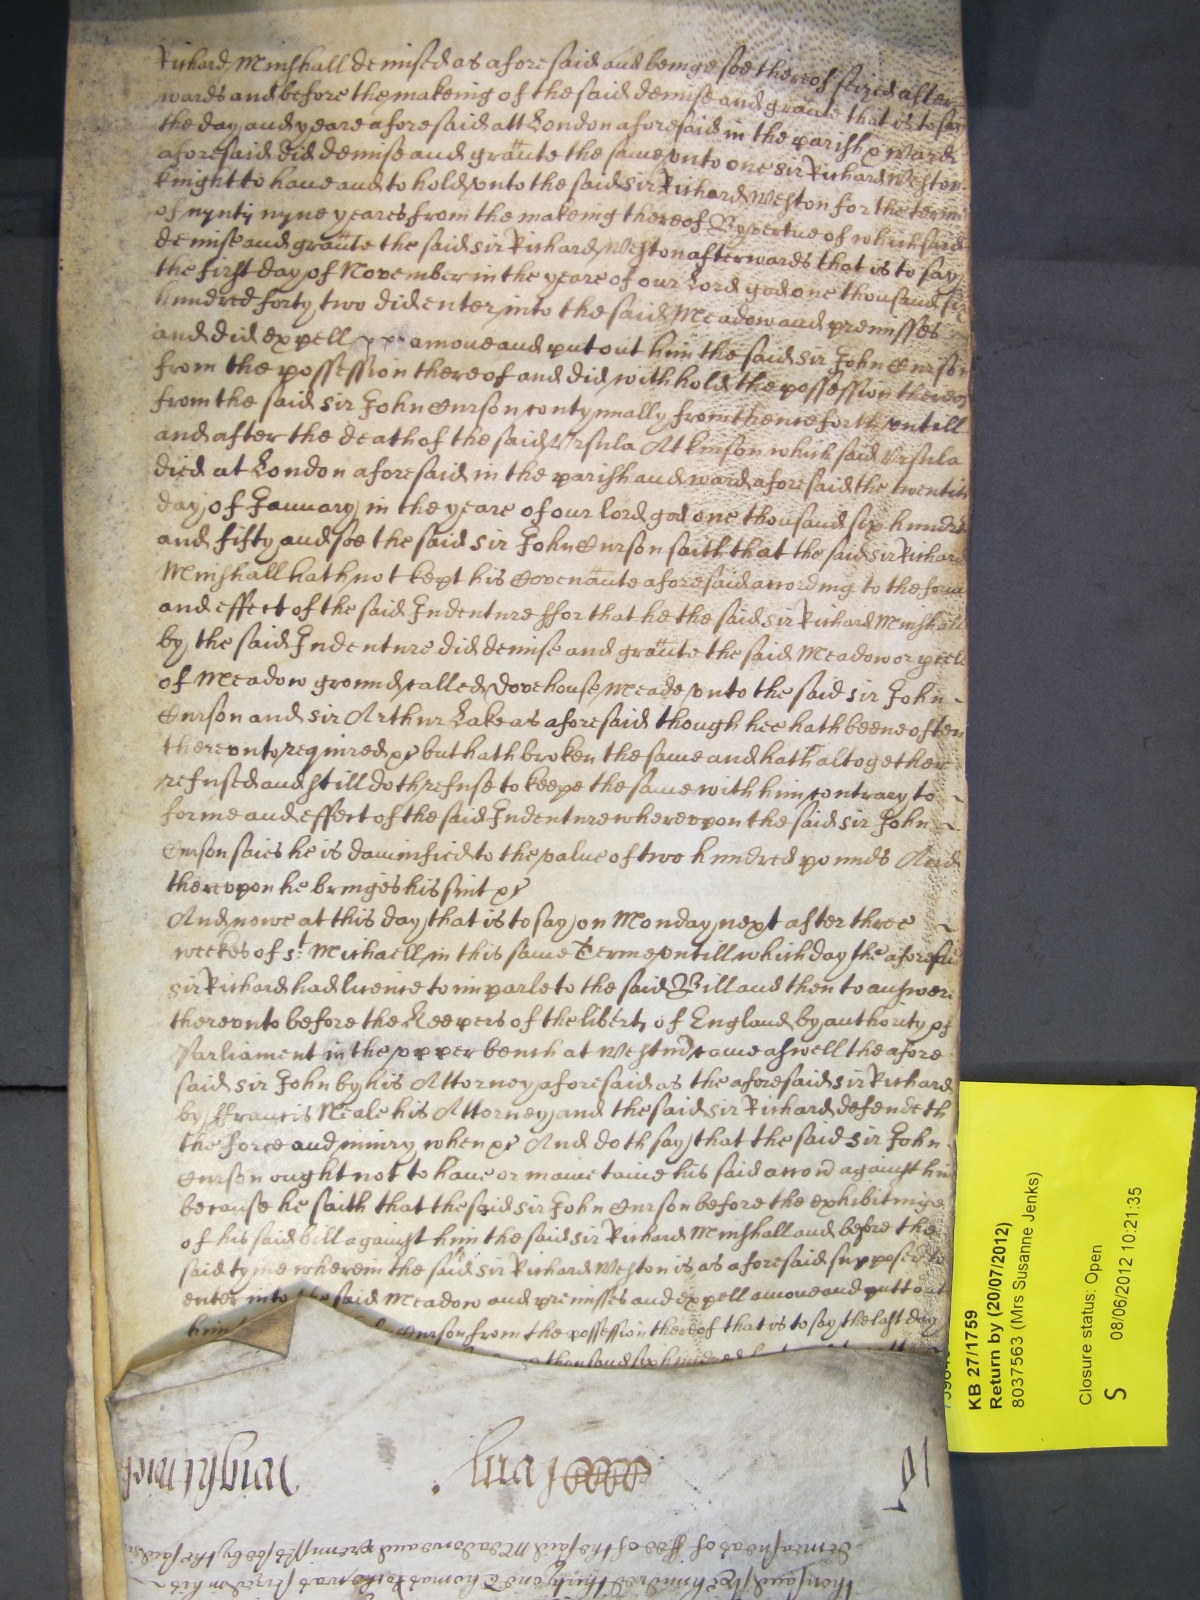 Richard Minshall demised as aforesaid and beinge soe thereof seized after
wards and before the makeing of the said demise and graunte that is to say
the day and yeare aforesaid att London aforesaid in the parish & ward
aforesaid did demise and graunte the same unto one sir Richard Weston
knight to have and to hold unto the said sir Richard Weston for the terme
of nynty nyne yeares from the makeing thereof By vertue of which said
demise and graunte the said sir Richard Weston afterwards that is to say
the first day of November in the yeare of our Lord god one thousand six
hundred forty two did enter into the said Meadow and premisses
and did expell amove and put out him the said sir John Curson
from the possession thereof and did withhold the possession thereof
from the said sir John Curson contynually from thenceforth untill
and after the death of the said Ursula Atkinson which said Ursula
died at London aforesaid in the parish and ward aforesaid the twentith
day of January in the yeare of our lord god one thousand six hundred
and fifty and soe the said sir John Curson saith that the said sir Richard
Minshall hath not kept his Covenaute aforesaid according to the forme
and effect of the said Indenture ffor that he the said sir Richard Minshall
by the said Indenture did demise and graunte the said Meadow or pcell
of Meadow ground called Dovehouse Meade unto the said sir John
Curson and sir Arthur Lake as aforesaid though hee hath beene often
thereunto required &c but hath broken the same and hath altogether
refused and still doth refuse to keepe the same with him contrary to
forme and effect of the said Indenture whereupon the said sir John
Curson saies he is damnified to the value of two hundred pounds And
thereupon he bringes his suit &c
And nowe at this day that is to say on Monday next after three
weekes of st Michaell in this same Terme untill which day the aforesaid
sir Richard had licence to imparle to the said Bill and then to answere
thereunto before the Keepers of the liberty of England by authority of
Parliament in the upper bench at Westm came aswell the afore
said sir John by his Attorney aforesaid as the aforesaid sir Richard
by ffrancis Neale his Attorney and the said sir Richard defendeth
the force and iniury when &c And doth say that the said sir John
Curson ought not to have or maintaine his said accon against him
because he saith that the said sir John Curson before the exhibitinge
of his said bill against him the said sir Richard Minshall and before the
said tyme wherein the said sir Richard Weston is as aforesaid supposed to
enter into the said Meadow and premisses and expell amove and putt out
him Curson from the possession thereof that is to say the last day
thousand six hundred
KB 27/1759
Return by (20/07/2012)
8037563 (Mrs Susanne Jenks)
Closure status: Open
S 08/06/2012 10:21:35
thousand six hundred thirty one Thomas was seized in his
demeasne as of ffee of the said Meadowe and premisses soe by the said